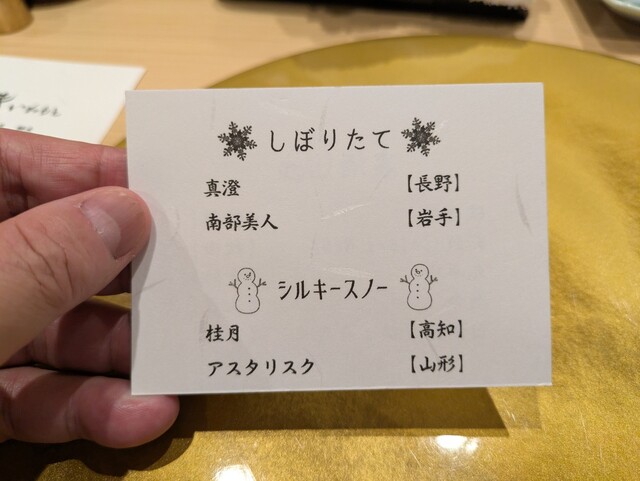 しぼりたて
真澄 【長野】
南部美人 【岩手】
シルキースノー
桂月 【高知】
アスタリスク 【山形】